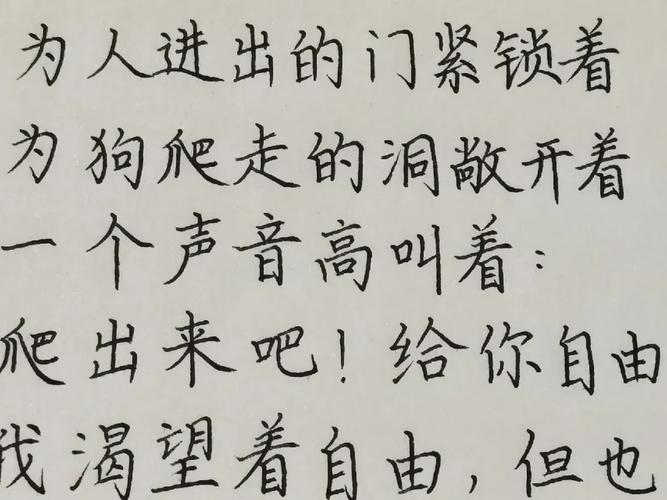 为人进出的门紧锁着
为狗爬走的洞敞开着
一个声音高叫着：
爬出来吧！给你自由
我渴望着自由，但也